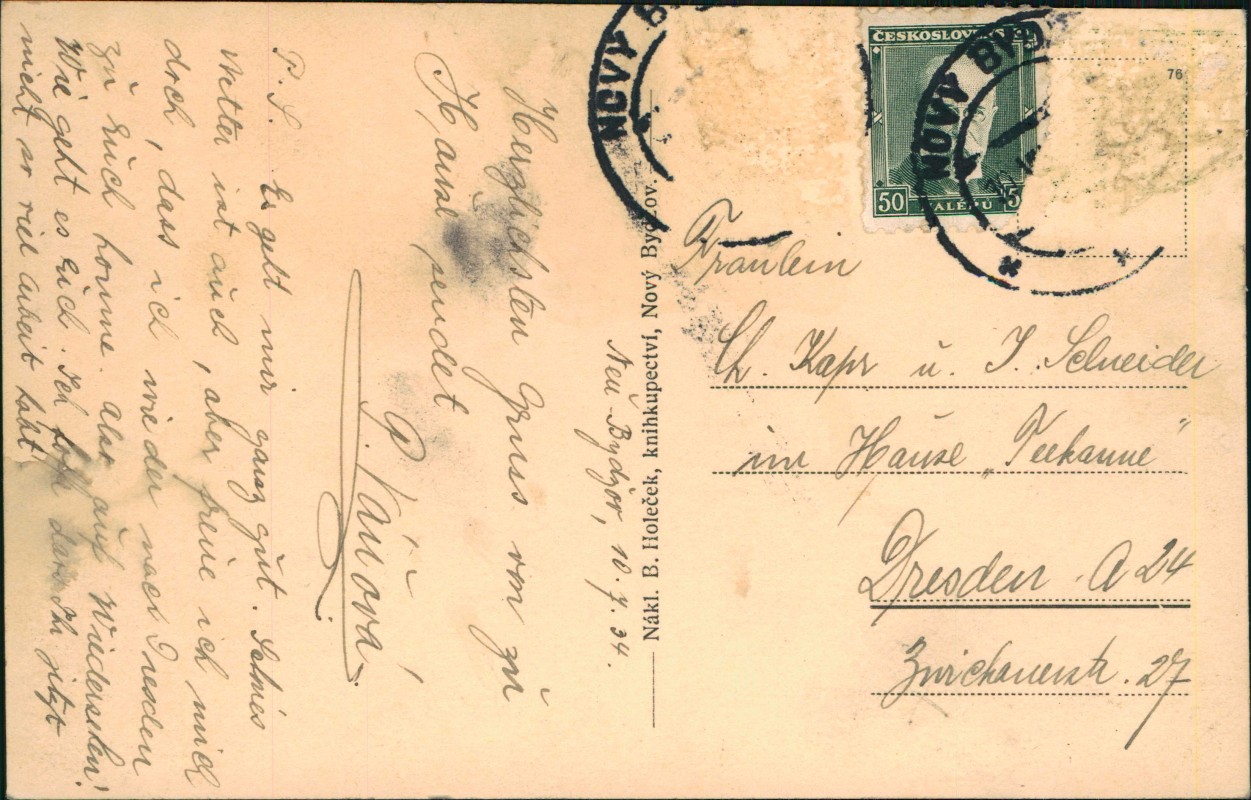 NOVÝ
ČESKOSLOVENS
NOVÝ BYD
50 HALÉŘŮ 5
76
Fräulein
Ch. Kapr u. I. Schneider
im Hause „Teekanne"
Dresden A 24
Zwickauerstr. 27
Nákl. B. Holeček, knihkupectví, Nový Bydžov.
Neu Bydžov, 10. 7. 34.
Herzlichsten Gruss von zu
Hause sendet
P.S. Es geht mir ganz gut. Schönes
Wetter ist auch, aber freue ich mich
doch, dass ich wieder nach Dresden
zu Euch komme. Also auf Wiedersehen!
Wie geht es Euch. Ich hoffe dass Ihr jetzt
nicht so viel Arbeit habt.